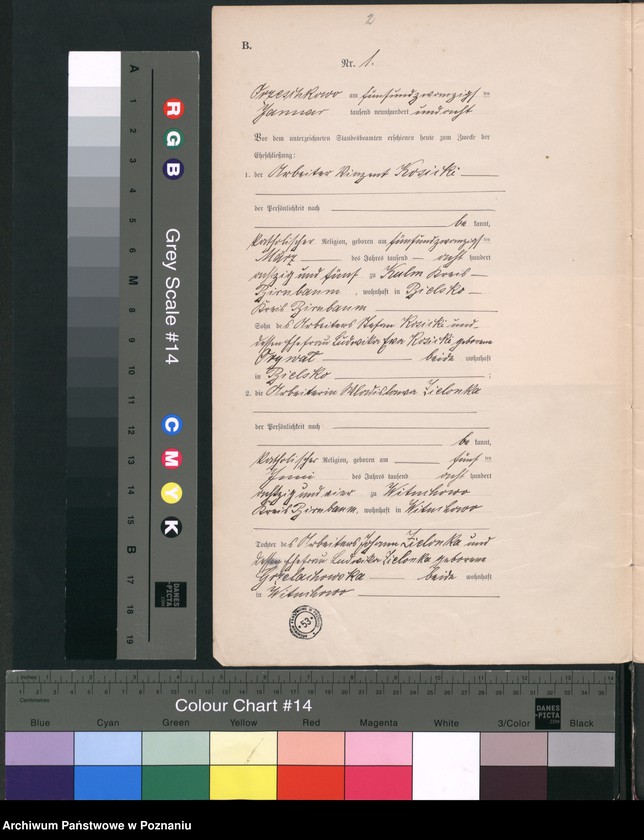 2
B.
Nr. 1.
Orzeschkowo am fünfundzwanzigsten
Januar tausend neunhundert und acht
Vor dem unterzeichneten Standesbeamten erschienen heute zum Zwecke der
Eheschließung:
1. der Arbeiter Vinzent Kosicki
der Persönlichkeit nach
be kannt,
katholischer Religion, geboren am fünfundzwanzigsten
März des Jahres tausend acht hundert
achtzig und fünf zu Kulm Kreis
Birnbaum, wohnhaft in Bielsko
Kreis Birnbaum
Sohn des Arbeiters Stefan Kosicki und
dessen Ehefrau Ludovika Eva Kosicki geborene
beide wohnhaft
in Bielsko ;
2. die Arbeiterin Wladislawa Zielonka
der Persönlichkeit nach
be kannt,
katholischer Religion, geboren am fünften
Juni des Jahres tausend acht hundert
achtzig und vier zu Mitnichowo
Kreis Birnbaum, wohnhaft in Mitnichowo
Tochter des Arbeiters Johann Zielonka und
dessen Ehefrau Ludovika Zielonka geborene
beide wohnhaft
in Mitnichowo
53
R
G
B
Grey Scale #14
C
M
Y
K
A 1 2 3 4 5 6 M 8 9 10 11 12 13 14 15 B 17 18 19
DANES
-PICTA
.COM
Inches 1 2 3 4 5 6 7 8 9 10 11 12 13 14
Centimetres
Colour Chart #14
DANES
-PICTA
.COM
Blue Cyan Green Yellow Red Magenta White 3/Color Black
Archiwum Państwowe w Poznaniu